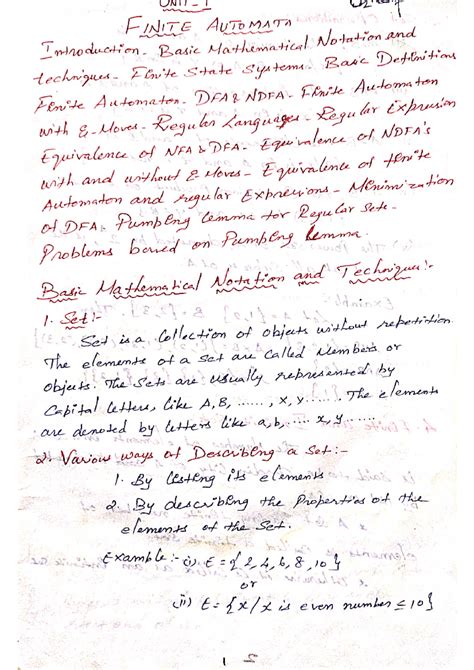 UNIT-1
FINITE AUTOMATA
Introduction- Basic Mathematical Notation and
techniques- Finite State Systems- Basic Definitions
Finite Automaton- DFA & NDFA- Finite Automaton
with ε-Moves- Regular Languages- Regular Expression
Equivalence of NFA & DFA- Equivalence of NDFA's
with and without ε Moves- Equivalence of finite
Automaton and regular Expressions- Minimization
of DFA- Pumping lemma for Regular Sets-
Problems based on Pumping Lemma.
Basic Mathematical Notation and Techniques:-
1. Set:-
Set is a Collection of objects without repetition
The elements of a Set are Called Members or
objects. The Sets are usually represented by
Capital letters, like A, B, ......, X, Y...... The elements
are denoted by letters like a, b, .... x, y......
2. Various ways of Describing a Set:-
1. By listing its elements
2. By describing the Properties of the
elements of the Set.
Example:- i). E = {2, 4, 6, 8, 10}
or
ii) E = {x/x is even number ≤ 10}
1